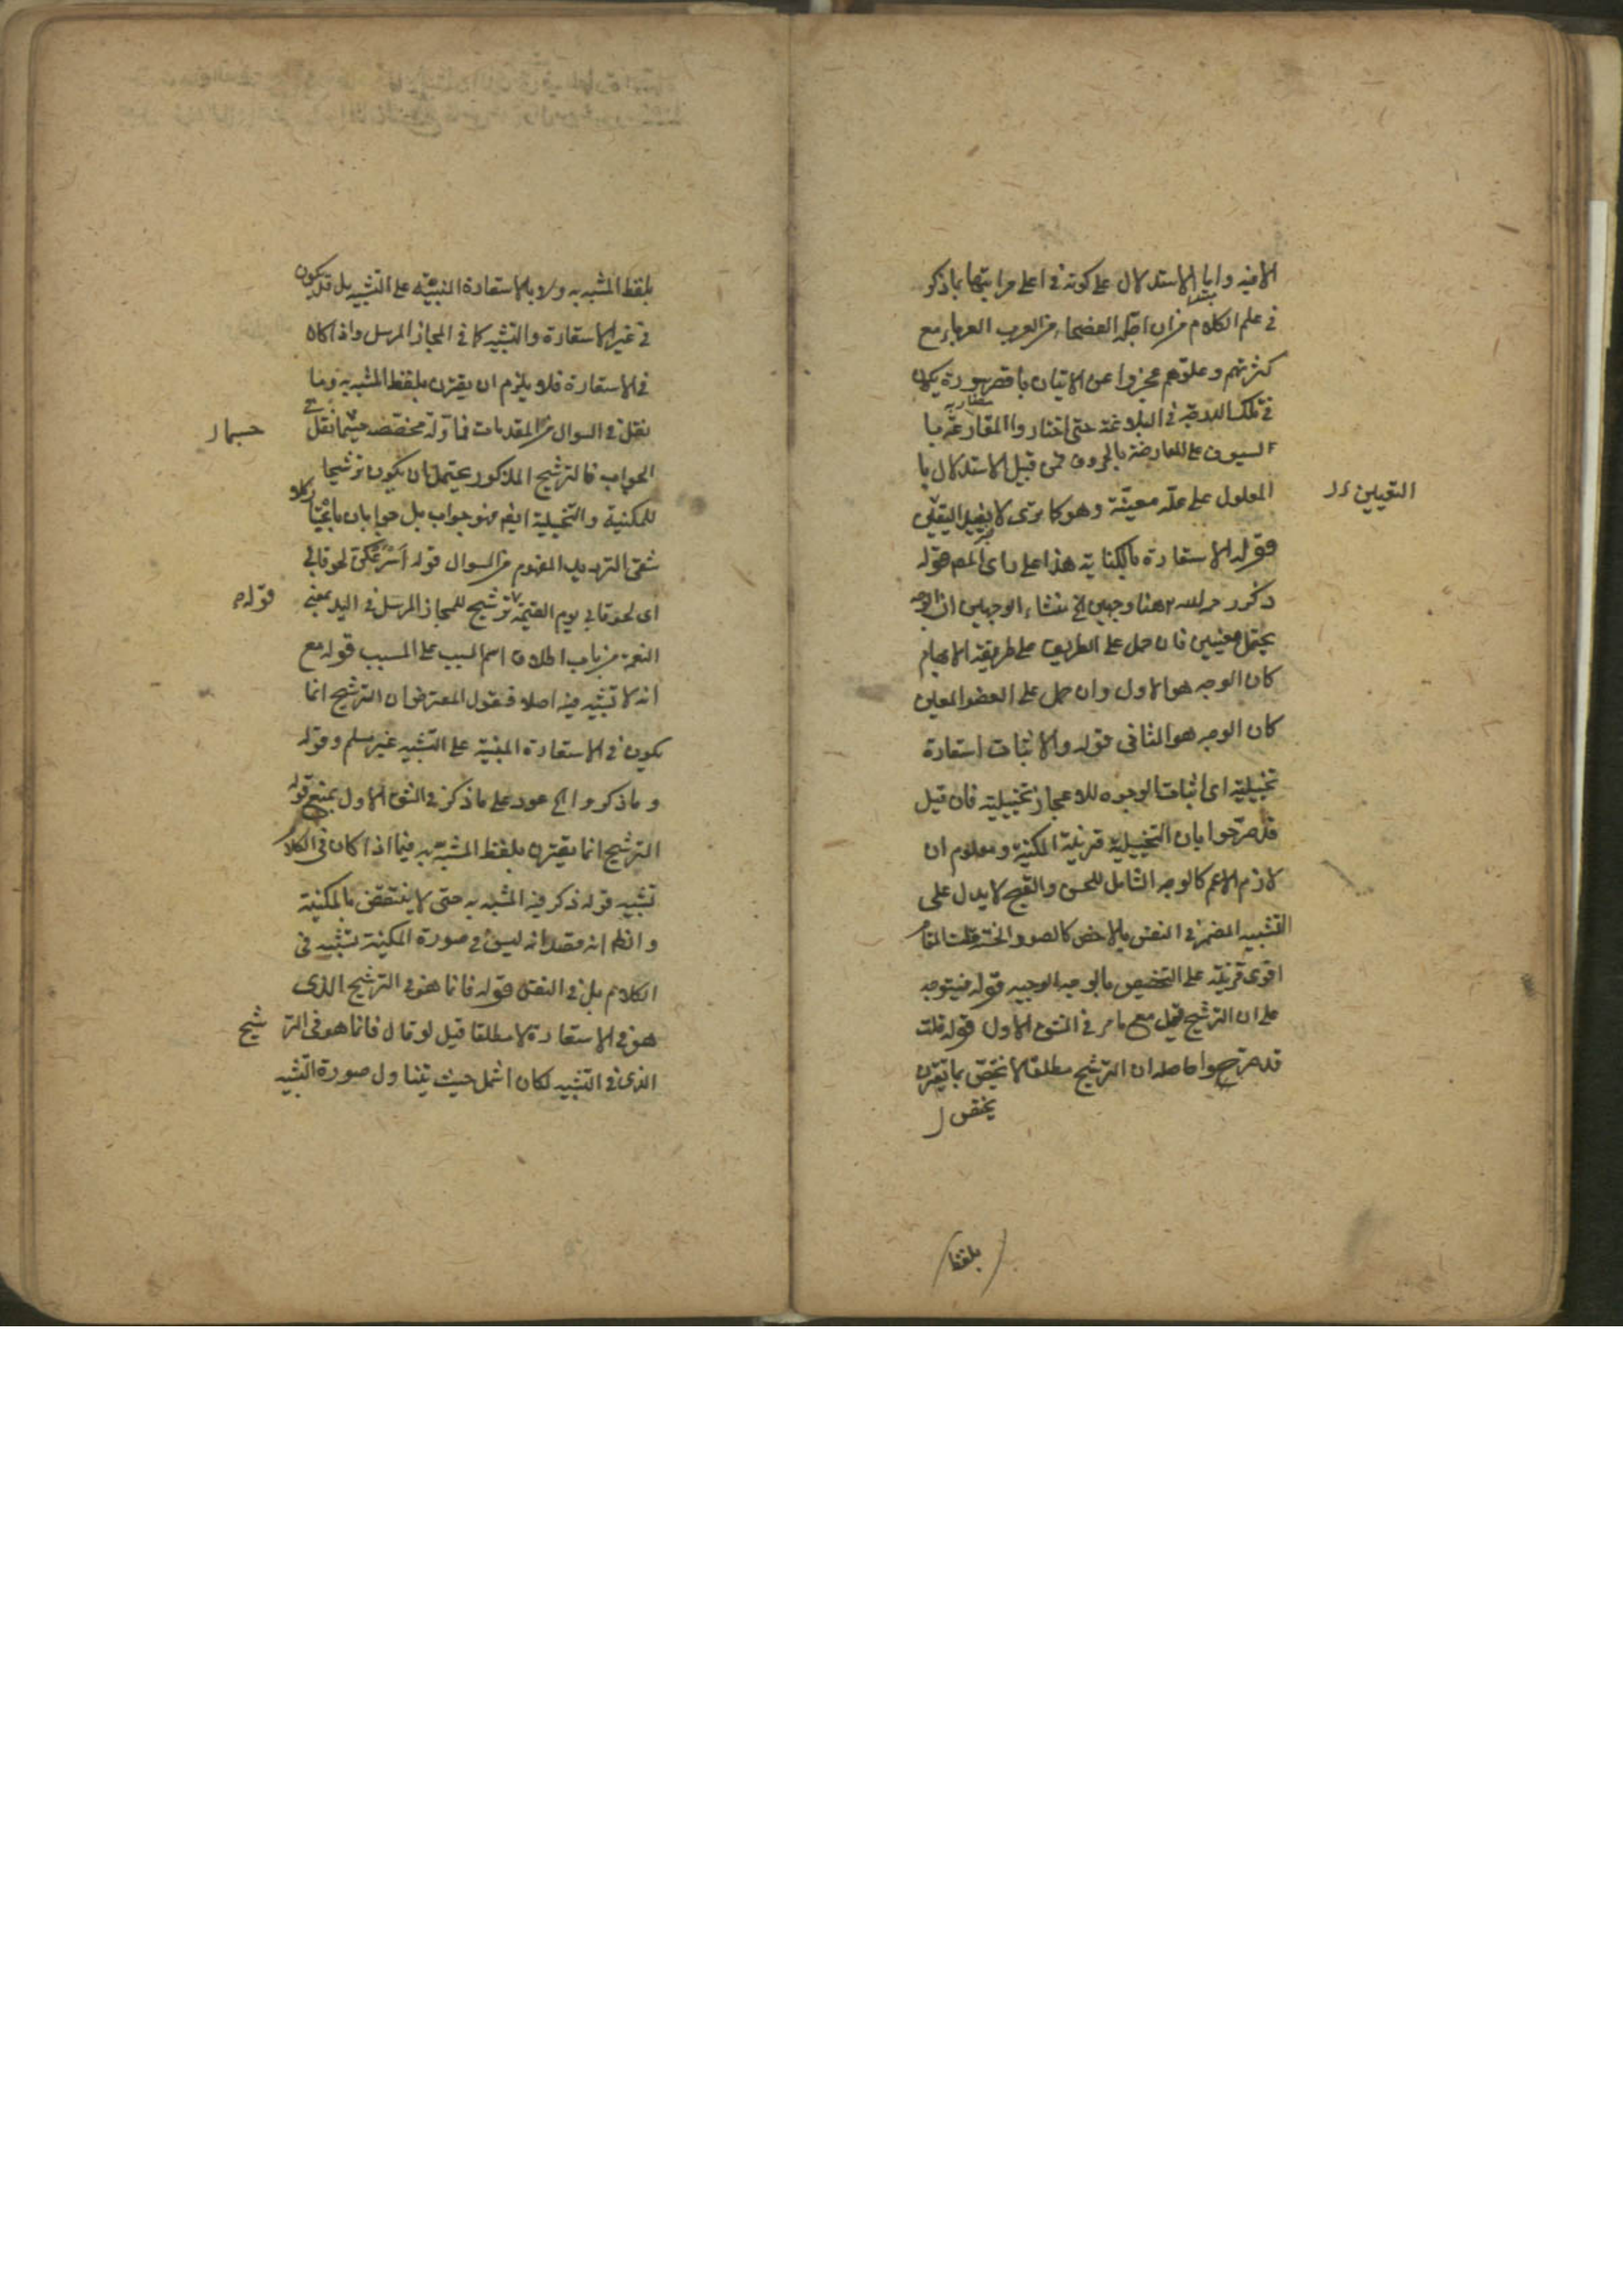 الا فيه واما الاستدلال على كونه في اعلى مراتبها بما ذكر
في علم الكلام من ان اجلة الفصحاء من العرب العرباء مع
كثرتهم وعلوهم عجزوا عن الاتيان باقصر سورة يكون
في تلك المرتبة في البلاغة حتى اختاروا المقارعة با
لسيوف على المعارضة بالحروف فمن قبيل الاستدلال با
المعلول على علة معينة وهو كما ترى لا يفيد اليقين
التعيين
قوله الاستعارة بالكناية هذا على راى المص قوله
ذكر رحمه الله ههنا وجهين الخ منشاء الوجهين ان الوجه
يحتمل معنيين فان حمل على الطريق على طريقة الايهام
كان الوجه هو الاول وان حمل على العضو المعين
كان الوجه هو الثاني قوله والاثبات استعارة
تخييلية اى اثبات الوجوه للاعجاز تخييلية فان قيل
قد صرحوا بان التخييلية قرينة المكنية ومعلوم ان
لازم الاعم كالوجه الشامل للحسن والقبح لا يدل على
التشبيه المضمر في النفس بالاخص كالصور الحسنة قلت المقام
اقوى قرينة على التخصيص بالوجه الوجيه قوله فيتوجه
على ان الترشيح قيل مع ما مر في الشق الاول قوله قلت
قد صرحوا حاصله ان الترشيح مطلقا لا يختص بما يقترن
يختص
بلفظ
بلفظ المشبه به ولا بالاستعارة المبنية على التشبيه بل قد يكون
في غير الاستعارة والتشبيه كما في المجاز المرسل واذا كان
في الاستعارة فلا يلزم ان يقترن بلفظ المشبه به وما
نقل في السوال من المقدمات فماولة مخصصة حيثما نقل في
الجواب فالترشيح المذكور يحتمل ان يكون ترشيحا
للمكنية والتخييلية ايضا فهو جواب بل جوابان باختيار كلا
شقى الترديد المفهوم من السوال قوله اسرعكن لحوقا بي
اى لحوقا بي يوم القيمة ترشيح للمجاز المرسل في اليد بمعنى
قوله
النعمة من باب اطلاق اسم السبب على المسبب قوله مع
انه لا تشبيه فيه اصلا فيقول المعترض ان الترشيح انما
يكون في الاستعارة المبنية على التشبيه غير مسلم وقوله
وما ذكروا الخ عود على ما ذكر في الشق الاول بمنع قوله
الترشيح انما يقترن بلفظ المشبه به فيما اذا كان في الكلام
تشبيه قوله ذكر فيه المشبه به حتى لا ينتقض بالمكنية
والظ انه قصد انه ليس في صورة المكنية تشبيه في
الكلام بل في النفس قوله فانما هو في الترشيح الذى
هو في الاستعارة لا مطلقا قيل لو قال فانما هو في التر شيح
الذى في التشبيه لكان اشمل حيث يتناول صورة التشبيه